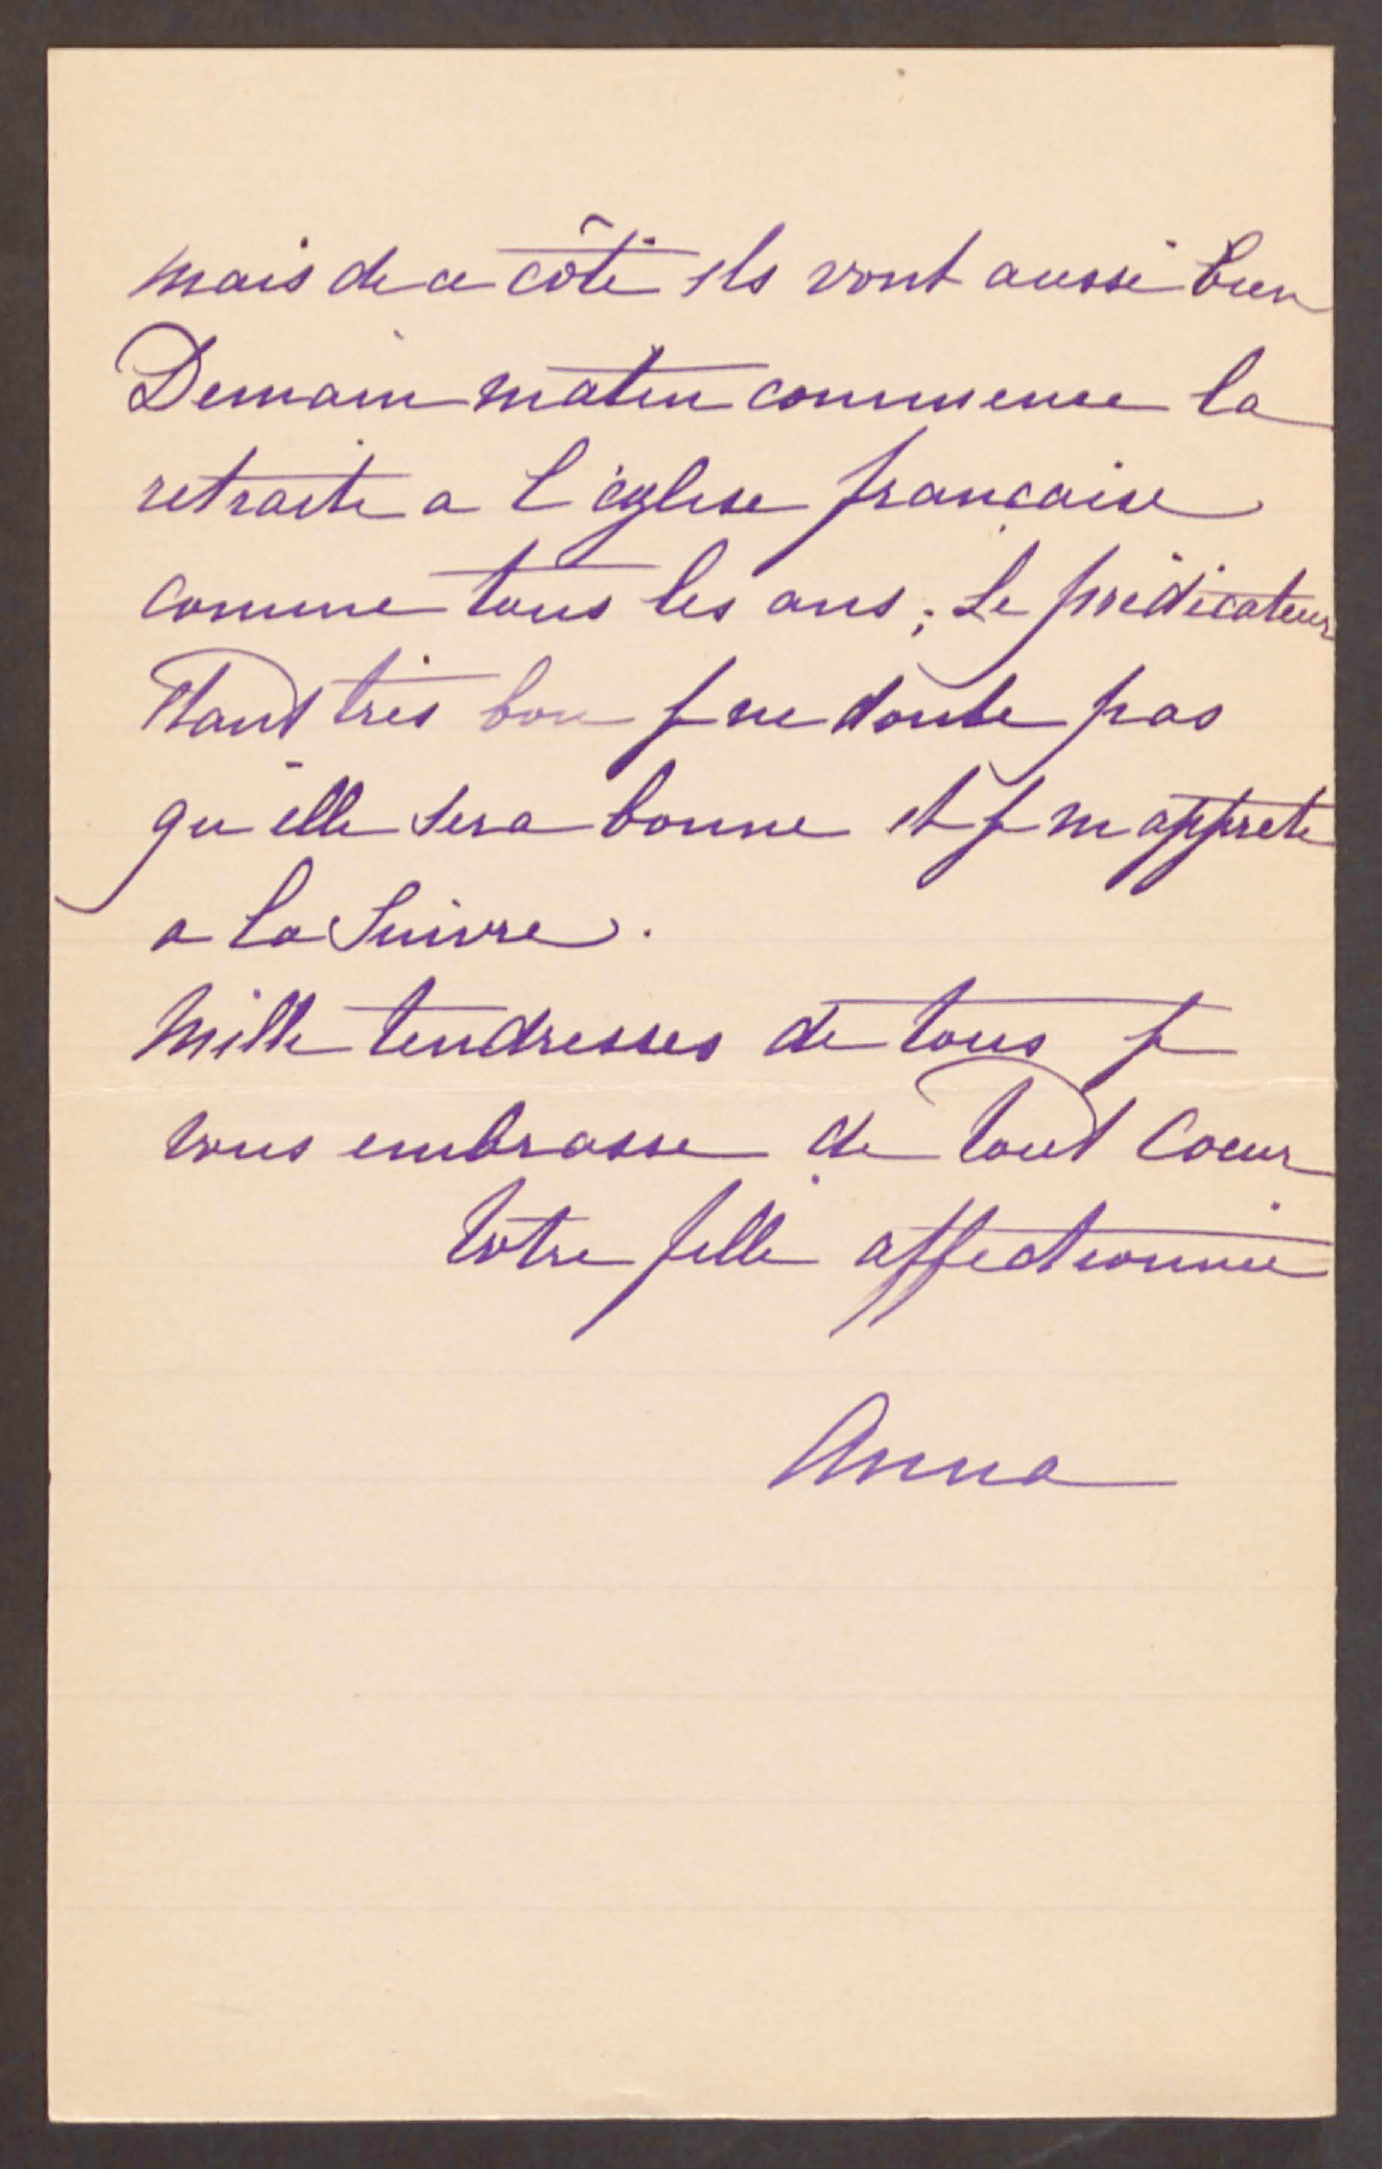 mais de ce côté ils vont aussi bien
Demain matin commence la
retraite a l'église francaise
comme tous les ans ; Le prédicateur
étant très bon je ne doute pas
qu'elle sera bonne et je m'apprete
a la Suivre.
Mille tendresses de tous je
vous embrasse de tout coeur
Votre fille affectionnée
Anna